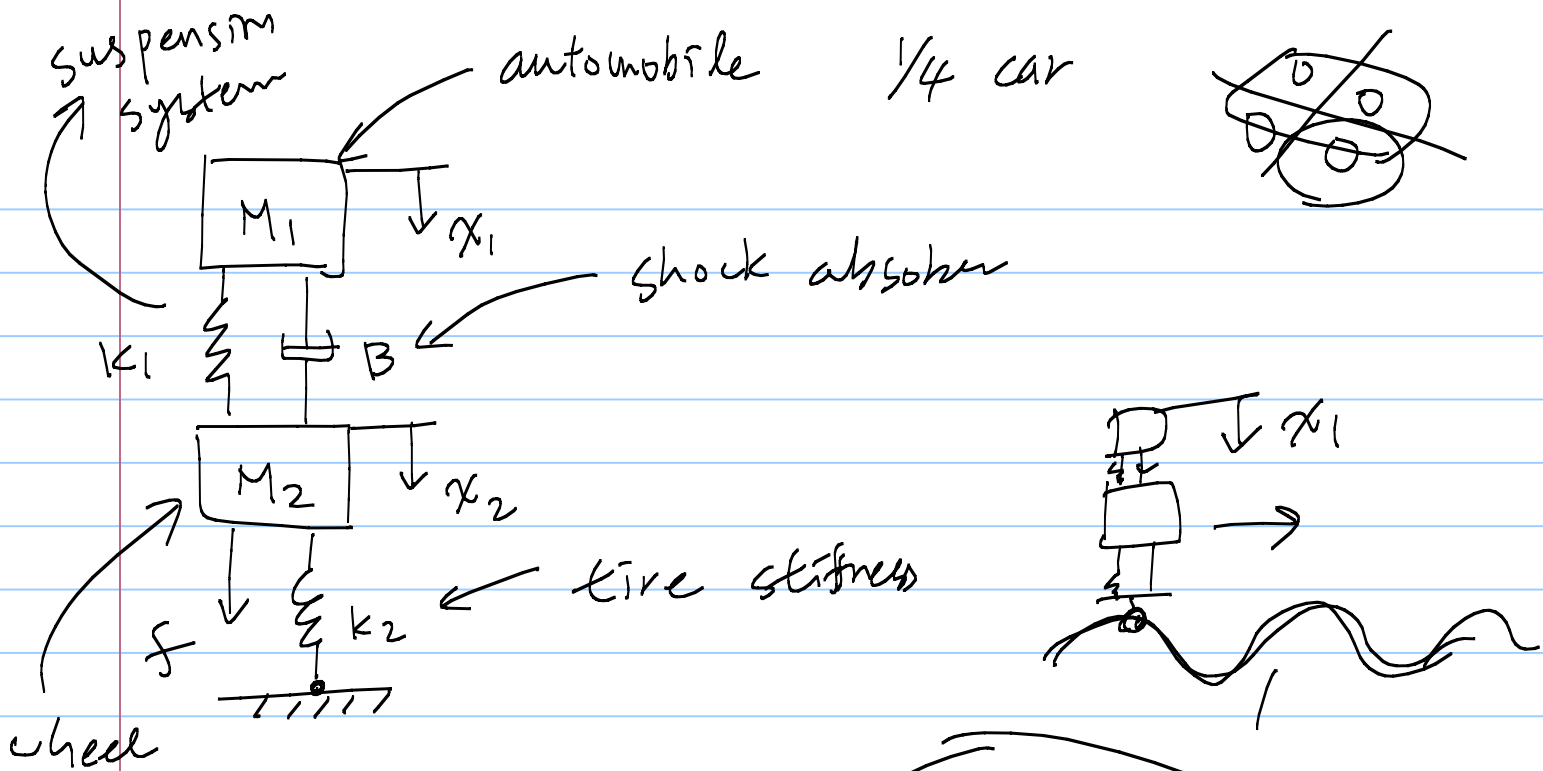 suspension
system
automobile
1/4 car
M1
x1
shock absober
K1
B
M2
x2
x1
tire stiffness
f
K2
wheel